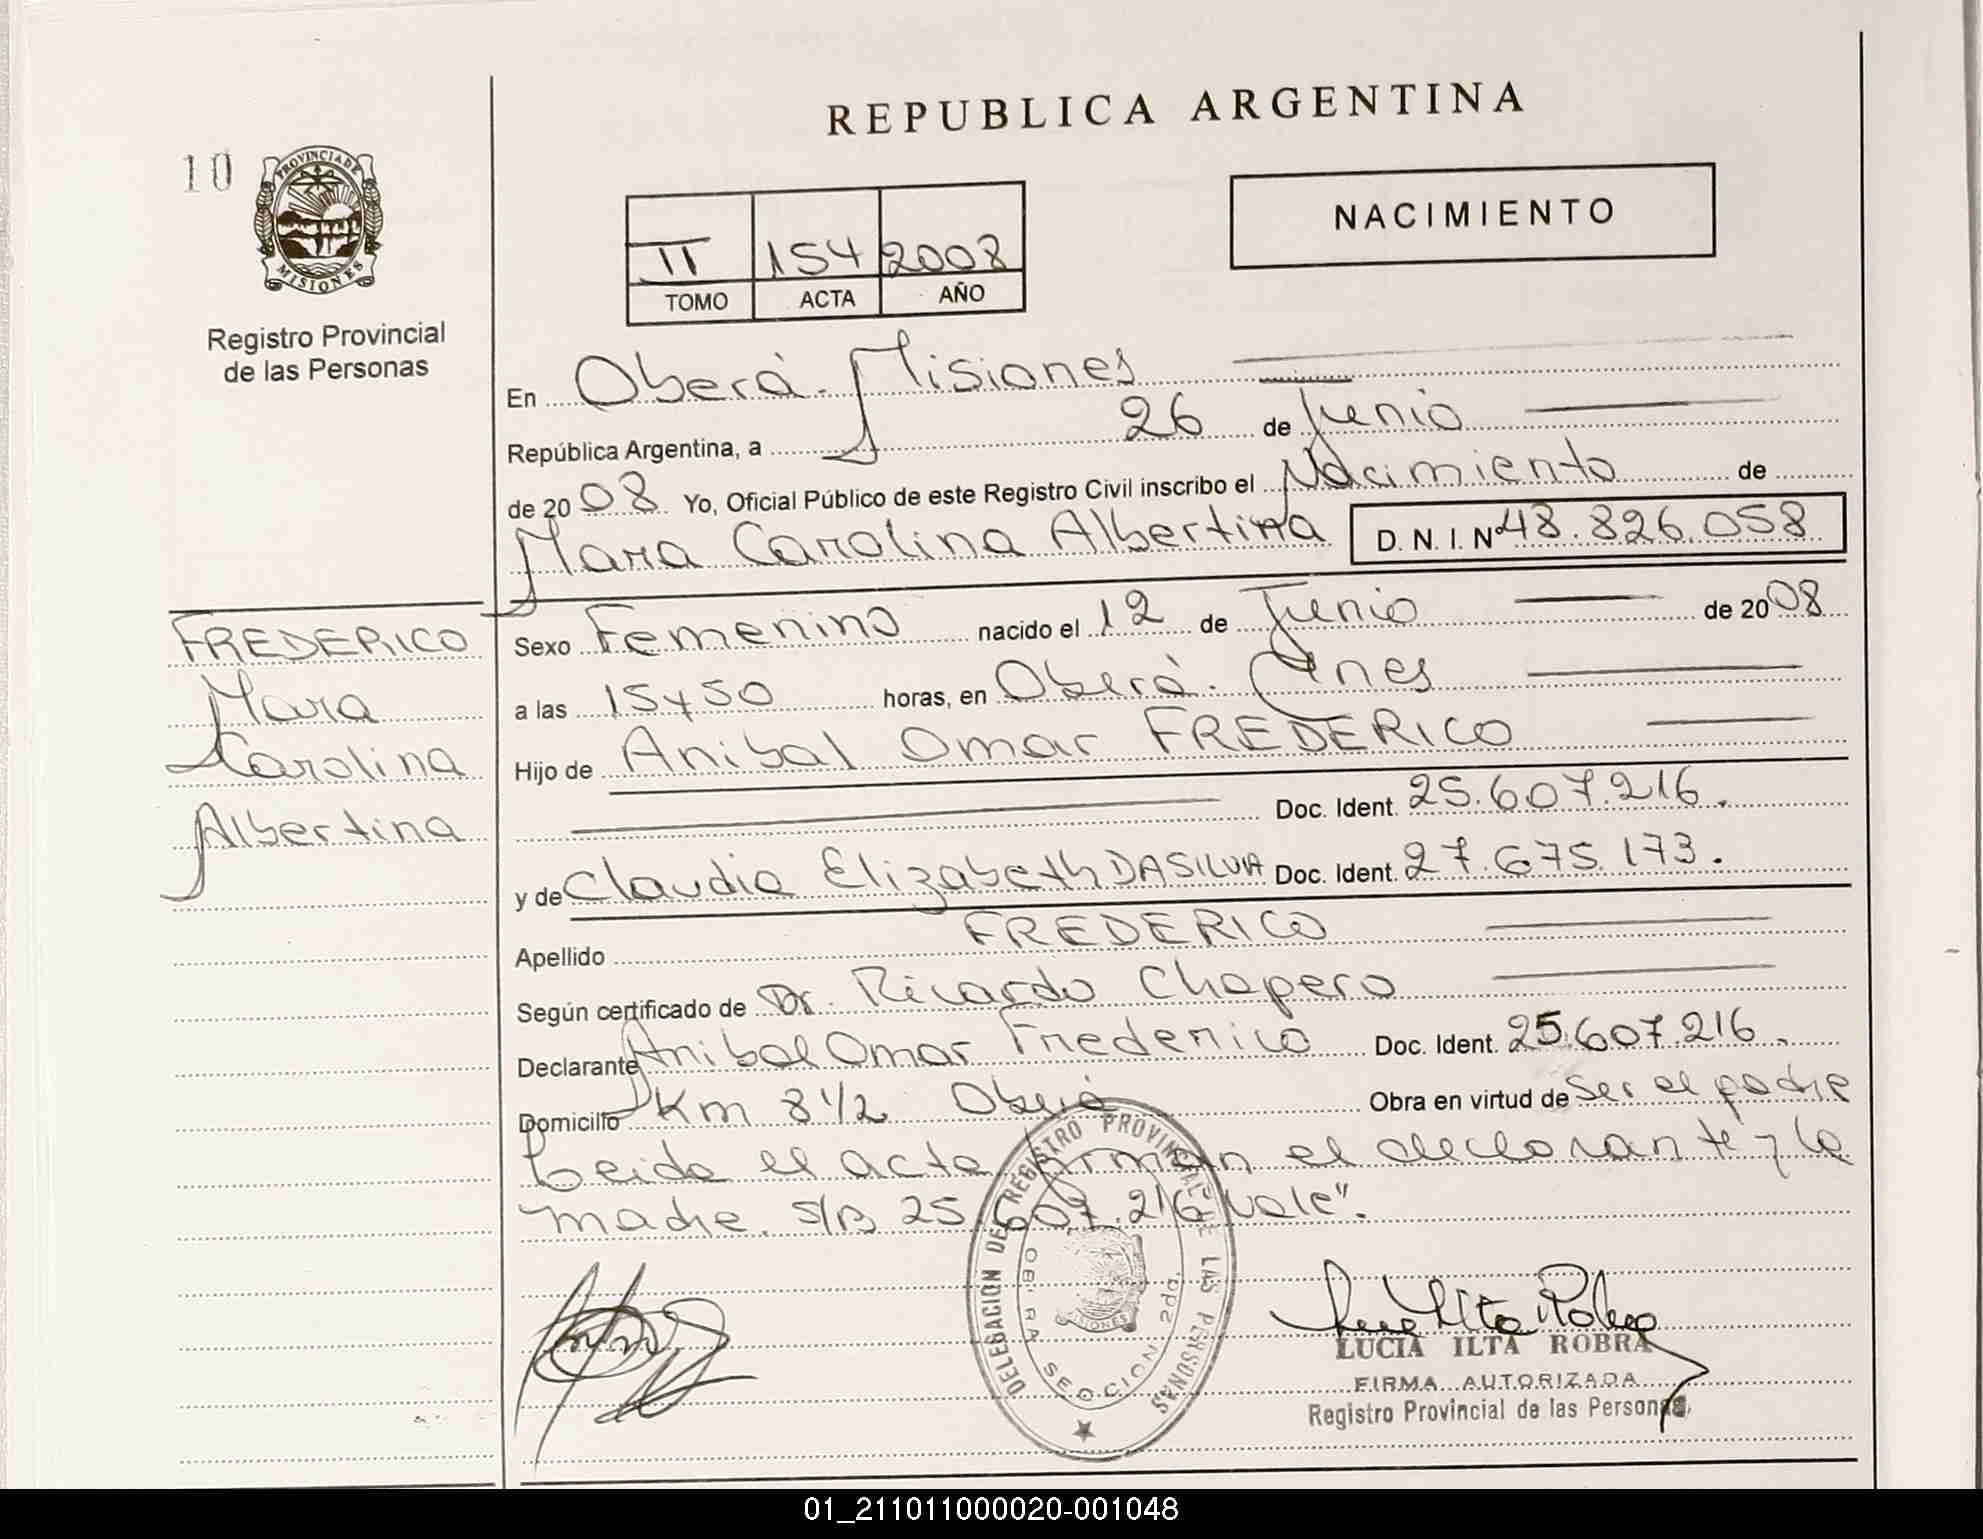 REPUBLICA ARGENTINA
10
PROVINCIA DE
MISIONES
Registro Provincial
de las Personas
NACIMIENTO
II 154 2008
TOMO ACTA AÑO
En Oberá. Misiones
República Argentina, a 26 de Junio
de 2008 Yo, Oficial Público de este Registro Civil inscribo el Nacimiento de
Mara Carolina Albertina D. N. I. Nº 48.826.058
FREDERICO
Mara
Carolina
Albertina
Sexo Femenino nacido el 12 de Junio de 2008
a las 15 y 50 horas, en Oberá. Mnes
Hijo de Anibal Omar FREDERICO
Doc. Ident. 25.607.216.
y de Claudia Elizabeth DASILVA Doc. Ident. 27.675.173.
Apellido FREDERICO
Según certificado de Dr. Ricardo Chapero
Declarante Anibal Omar Frederico Doc. Ident. 25.607.216.
Domicilio Km 8 1/2 Oberá Obra en virtud de ser el padre
Leida el acta firman el declarante y la
madre. S/B 25.607.216 vale".
DELEGACION DE REGISTRO PROVINCIAL DE LAS PERSONAS
SECCION 2da.
MISIONES
LUCIA ILTA ROBRA
FIRMA AUTORIZADA
Registro Provincial de las Personas
01_211011000020-001048